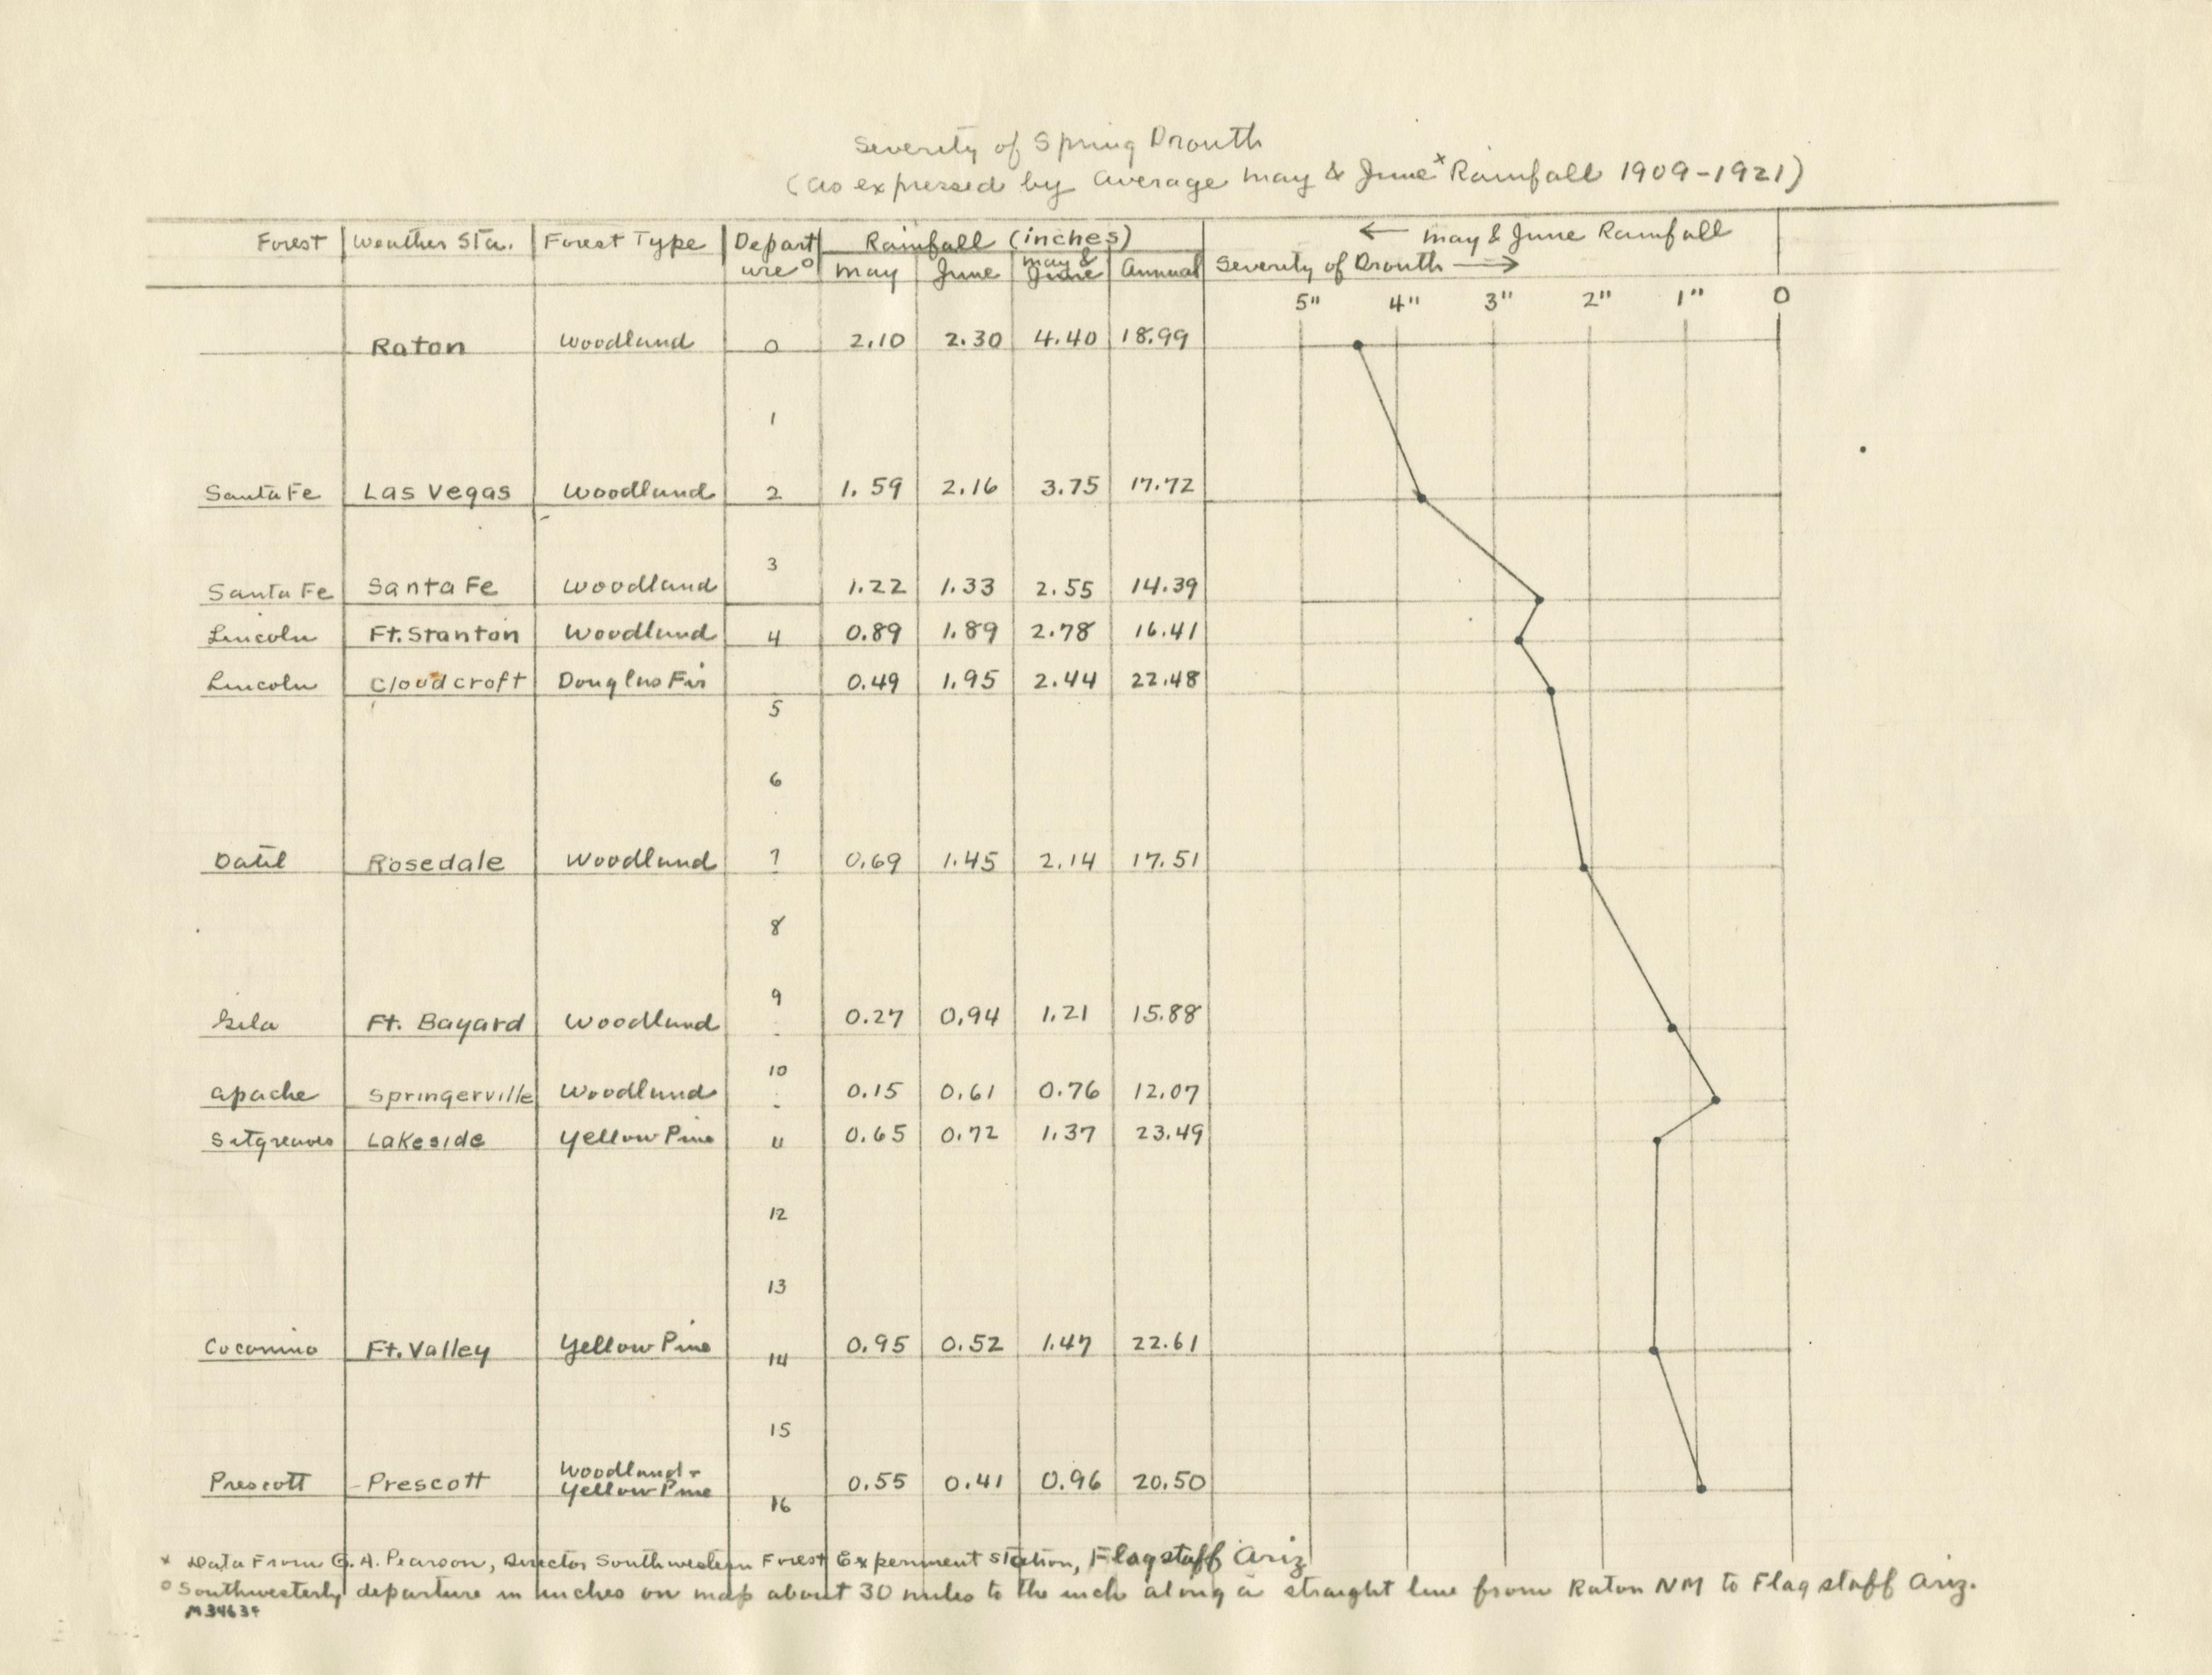 Severity of Spring Drouth
(as expressed by average May & June x Rainfall 1909-1921)
Forest Weather Sta. Forest Type Depart Rainfall (inches) ← May & June Rainfall
ure o May June May & June Annual Severity of Drouth →
5" 4" 3" 2" 1" 0
Raton Woodland 0 2.10 2.30 4.40 18.99
1
Santa Fe Las Vegas Woodland 2 1.59 2.16 3.75 17.72
3
Santa Fe Santa Fe Woodland 1.22 1.33 2.55 14.39
Lincoln Ft. Stanton Woodland 4 0.89 1.89 2.78 16.41
Lincoln Cloudcroft Douglas Fir 0.49 1.95 2.44 22.48
5
6
Datil Rosedale Woodland 7 0.69 1.45 2.14 17.51
8
9
Gila Ft. Bayard Woodland 0.27 0.94 1.21 15.88
10
Apache Springerville Woodland 0.15 0.61 0.76 12.07
Sitgreaves Lakeside Yellow Pine 11 0.65 0.72 1.37 23.49
12
13
Coconino Ft. Valley Yellow Pine 14 0.95 0.52 1.47 22.61
15
Prescott Prescott Woodland - Yellow Pine 0.55 0.41 0.96 20.50
16
x Data From G. A. Pearson, Director Southwestern Forest Experiment Station, Flagstaff Ariz
o Southwesterly departure in inches on map about 30 miles to the inch along a straight line from Raton NM to Flagstaff Ariz.